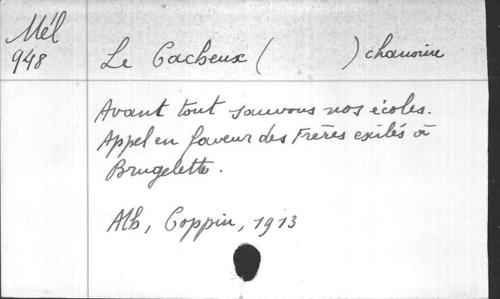 Mél
948
Le Cacheux ( ) chanoine
Avant tout sauvons nos écoles.
Appel en faveur des Frères exilés à
Brugelette.
Ath, Coppin, 1913